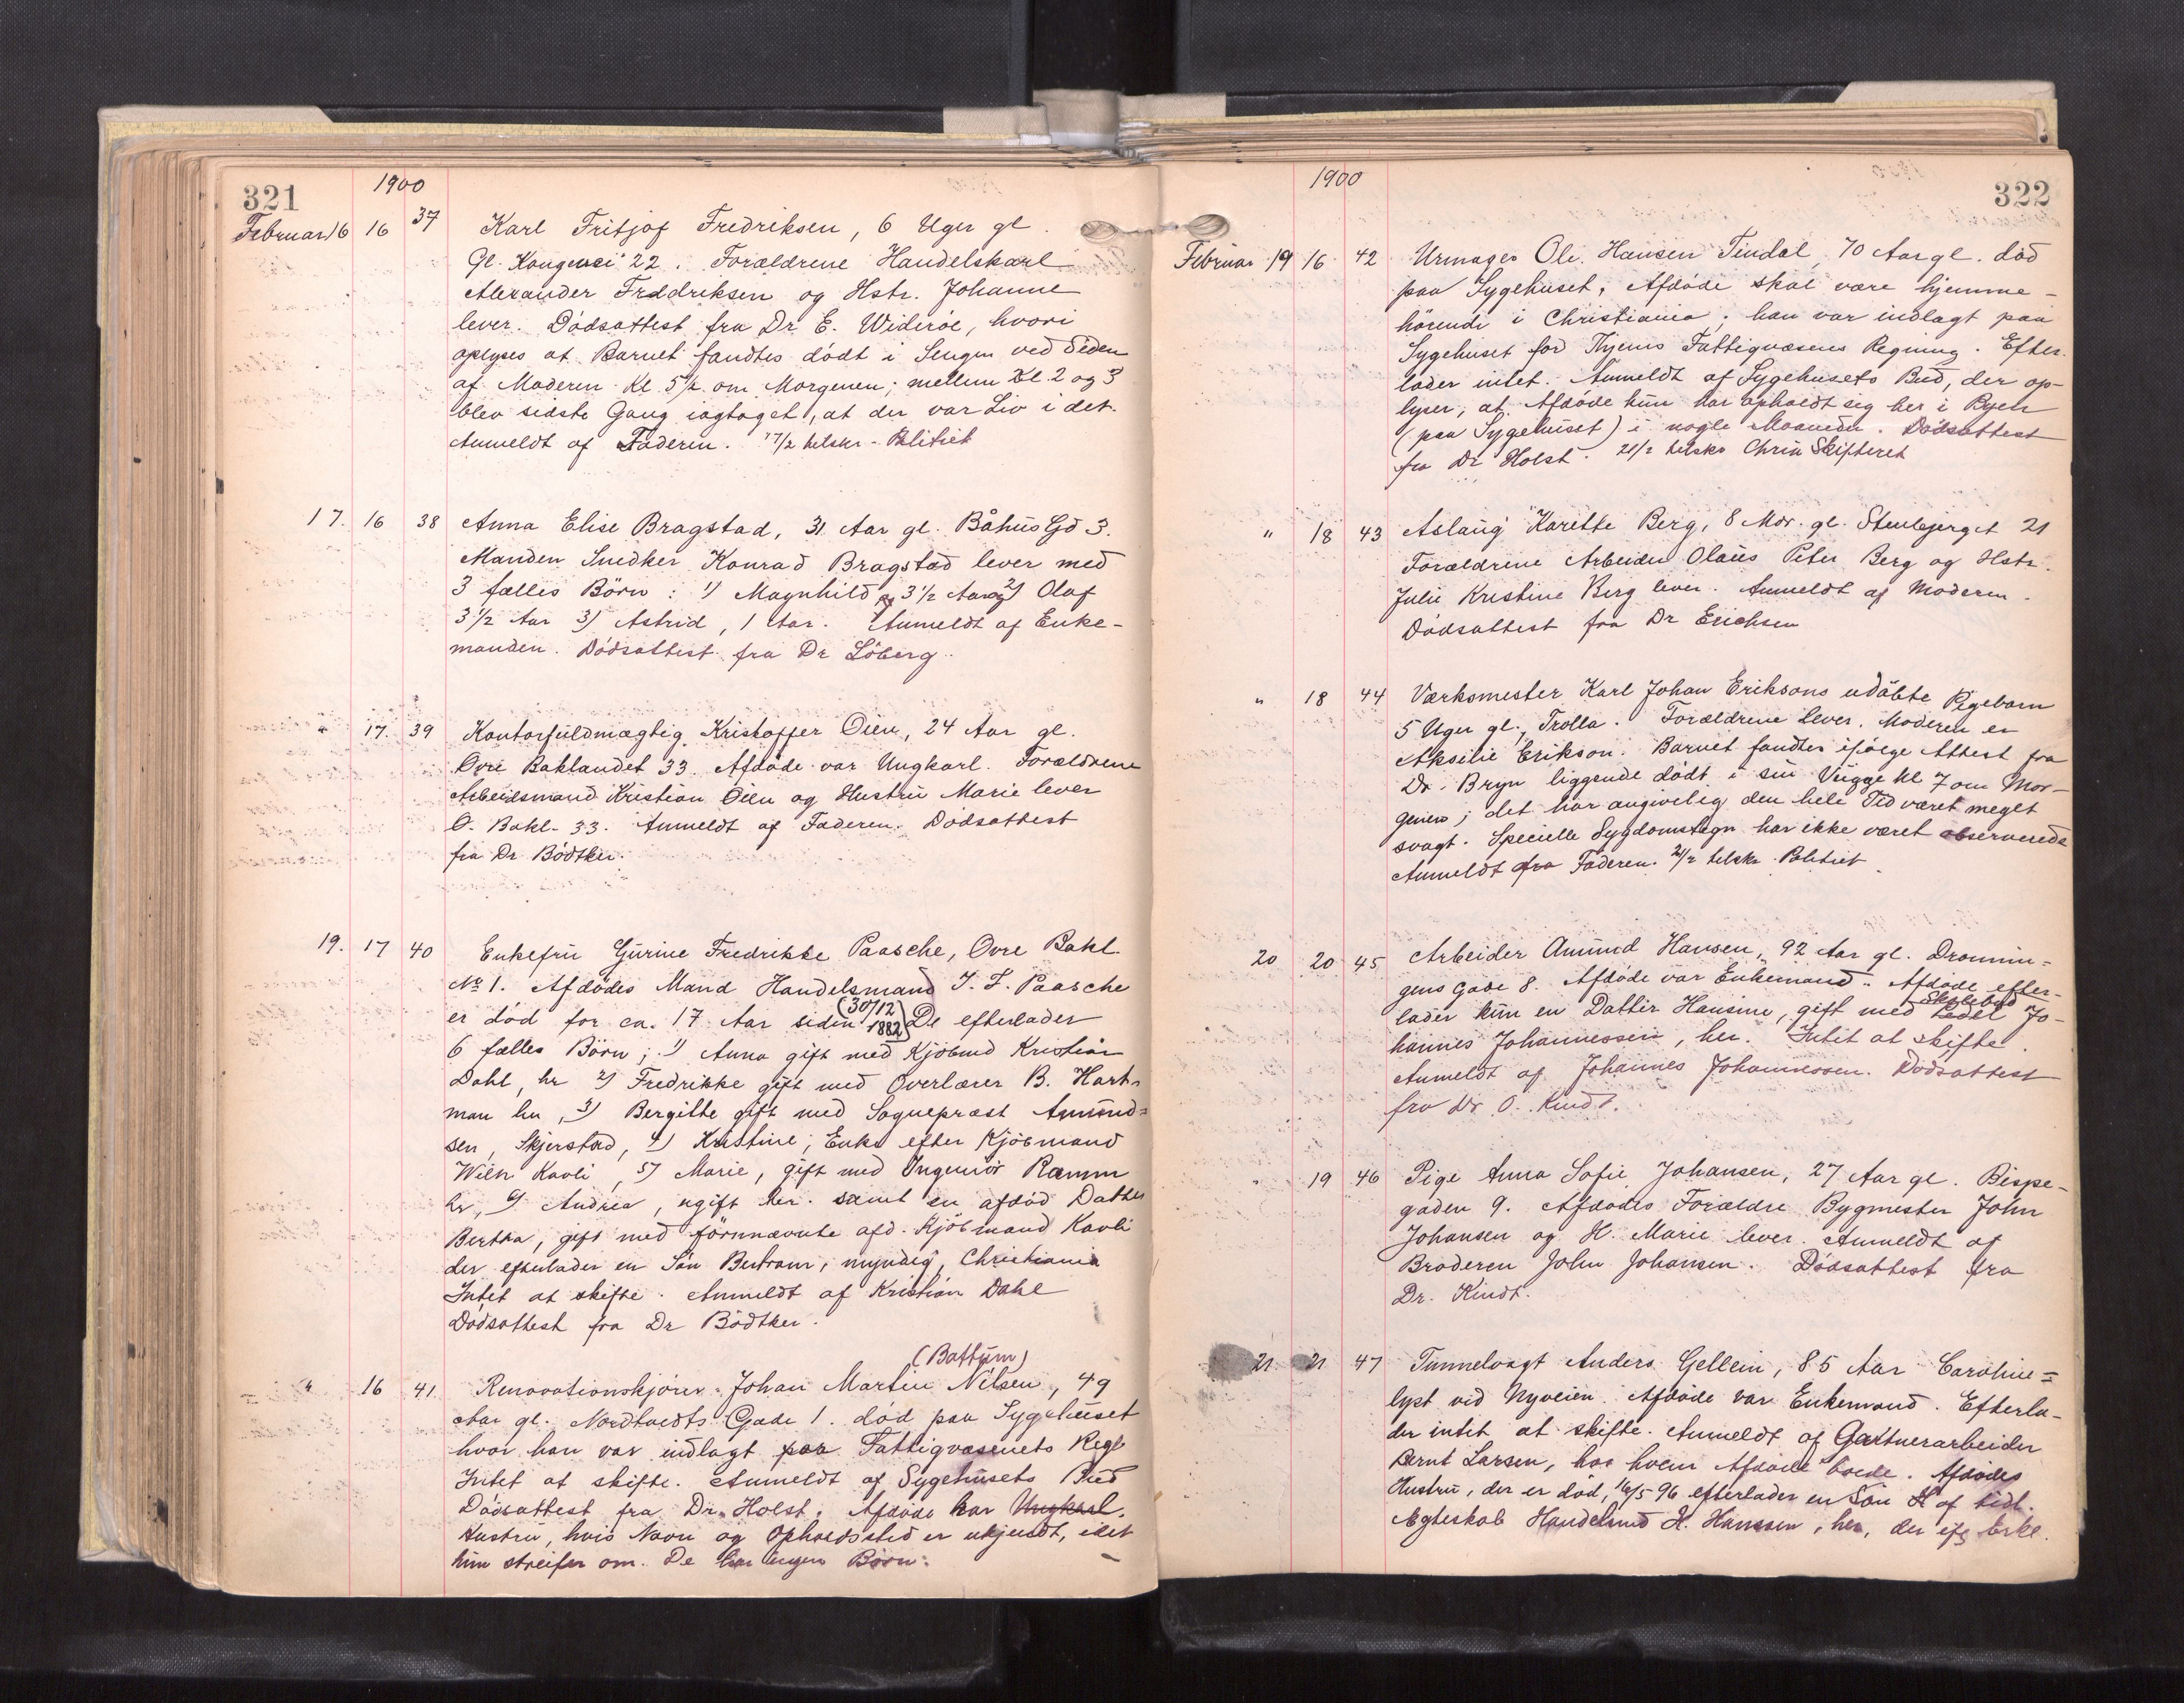 321
1900
Februar 16 16 37 Karl Fritjof Fredriksen, 6 Uger gl.
Gl. Kongevei 22. Forældrene Handelskarl
Alexander Freddriksen og Hstr. Johanne
lever. Dödsattest fra Dr E. Wideröe, hvori
oplyses at Barnet fandtes dödt i Sengen ved Siden
af Moderen Kl. 5½ om Morgenen; mellem Kl. 2 og 3
blev sidste Gang iagtaget, at der var Liv i det.
Anmeldt af Faderen. 17/2 tilskr. Politiet
17. 16 38 Anna Elise Bragstad, 31 Aar gl. Båhus Gd 3.
Manden Snedker Konrad Bragstad lever med
3 fælles Börn: 1) Magnhild 3½ Aar 2) Olaf
3½ Aar 3) Astrid, 1 Aar. Anmeldt af Enke-
manden. Dödsattest fra Dr Löberg.
" 17 39 Kontorfuldmægtig Kristoffer Öien, 24 Aar gl.
Övre Baklandet 33. Afdöde var Ungkarl. Forældrene
Arbeidsmand Kristian Öien og Hustru Marie lever
Ö. Bakl. 33. Anmeldt af Faderen. Dödsattest
fra Dr Bödtker.
19. 17 40 Enkefru Gurine Fredrikke Paasche, Övre Bakl.
No 1. Afdödes Mand Handelsmand J. F. Paasche
er död for ca. 17 Aar siden (30/12 1882) De efterlader
6 fælles Börn; 1) Anna gift med Kjöbmd Kristian
Dahl, her 2) Fredrikke gift med Overlærer B. Hart-
man her, 3) Bergitte gift med Sognepræst Amund-
sen, Skjerstad, 4) Kristine; Enke efter Kjöbmand
Wilh Kavli, 5) Marie, gift med Ingeniör Ramm
her, 6) Andrea, ugift her. samt en afdöd Datter
Bertha, gift med förnnævnte afd. Kjöbmand Kavli
der efterlader en Sön Bertram, myndig, Christiania
Intet at skifte. Anmeldt af Kristian Dahl
Dödsattest fra Dr Bödtker.
(Battum)
" 16 41 Renovationskjörer Johan Martin Nilsen, 49
Aar gl. Nordtvedts Gade 1. död paa Sygehuset
hvor han var indlagt paa Fattigvæsenets Regl
Intet at skifte. Anmeldt af Sygehusets Bud
Dödsattest fra Dr. Holst. Afdöde har Ungkarl.
Hustru, hvis Navn og Opholdssted er ukjendt, idet
hun streifer om. De har ingen Börn.
322
1900
Februar 19 16 42 Urmager Ole Hansen Tindal, 70 Aar gl. död
paa Sygehuset, Afdöde skal være hjemme-
hörende i Christiania; han var indlagt paa
Sygehuset for Thjems Fattigvæsens Regning. Efter-
lader intet. Anmeldt af Sygehusets Bud, der op-
lyser, at Afdöde kun har opholdt sig her i Byen
(paa Sygehuset) i nogle Maaneder. Dödsattest
fra Dr Holst. 21/2 tilskr Chria Skifteret
" 18 43 Aslaug Karette Berg, 8 Mdr. gl. Stenbjerget 21
Forældrene Arbeider Olaus Peter Berg og Hstr.
Julie Kristine Berg lever. Anmeldt af Moderen.
Dödsattest fra Dr Erichsen
" 18 44 Værksmester Karl Johan Eriksons udöbte Pigebarn
5 Uger gl., Trolla. Forældrene lever. Moderen er
Aksilie Erikson. Barnet fandtes ifölge Attest fra
Dr. Bryn liggende dödt i sin Vugge kl 7 om Mor-
genen; det har angivelig den hele Tid været meget
svagt. Specielle Sygdomstegn har ikke været observeret
Anmeldt fra Faderen. 21/2 tilskr. Politiet
20 20 45 Arbeider Amund Hansen, 92 Aar gl. Dronnin-
gens Gade 8. Afdöde var Enkemand. Afdöde efter-
lader kun en Datter Hansine, gift med Pedel Skolebud Jo-
hannes Johannessen, her. Intet at skifte.
Anmeldt af Johannes Johannessen. Dödsattest
fra Dr. O. Kindt.
" 19 46 Pige Anna Sofie Johansen, 27 Aar gl. Bispe-
gaden 9. Afdödes Forældre Bygmester John
Johansen og H. Marie lever. Anmeldt af
Broderen John Johansen. Dödsattest fra
Dr. Kindt.
21 21 47 Tunnelvagt Anders Gellein, 85 Aar Caroline-
lyst vid Nyveien. Afdöde var Enkemand. Efterla-
der intet at skifte. Anmeldt af Gartnerarbeider
Bernt Larsen, hos hvem Afdöde boede. Afdödes
Hustru, der er död, 16/5 96 efterlader en Sön af tidl.
Ægteskab Handelsmd H. Hanssen, her,